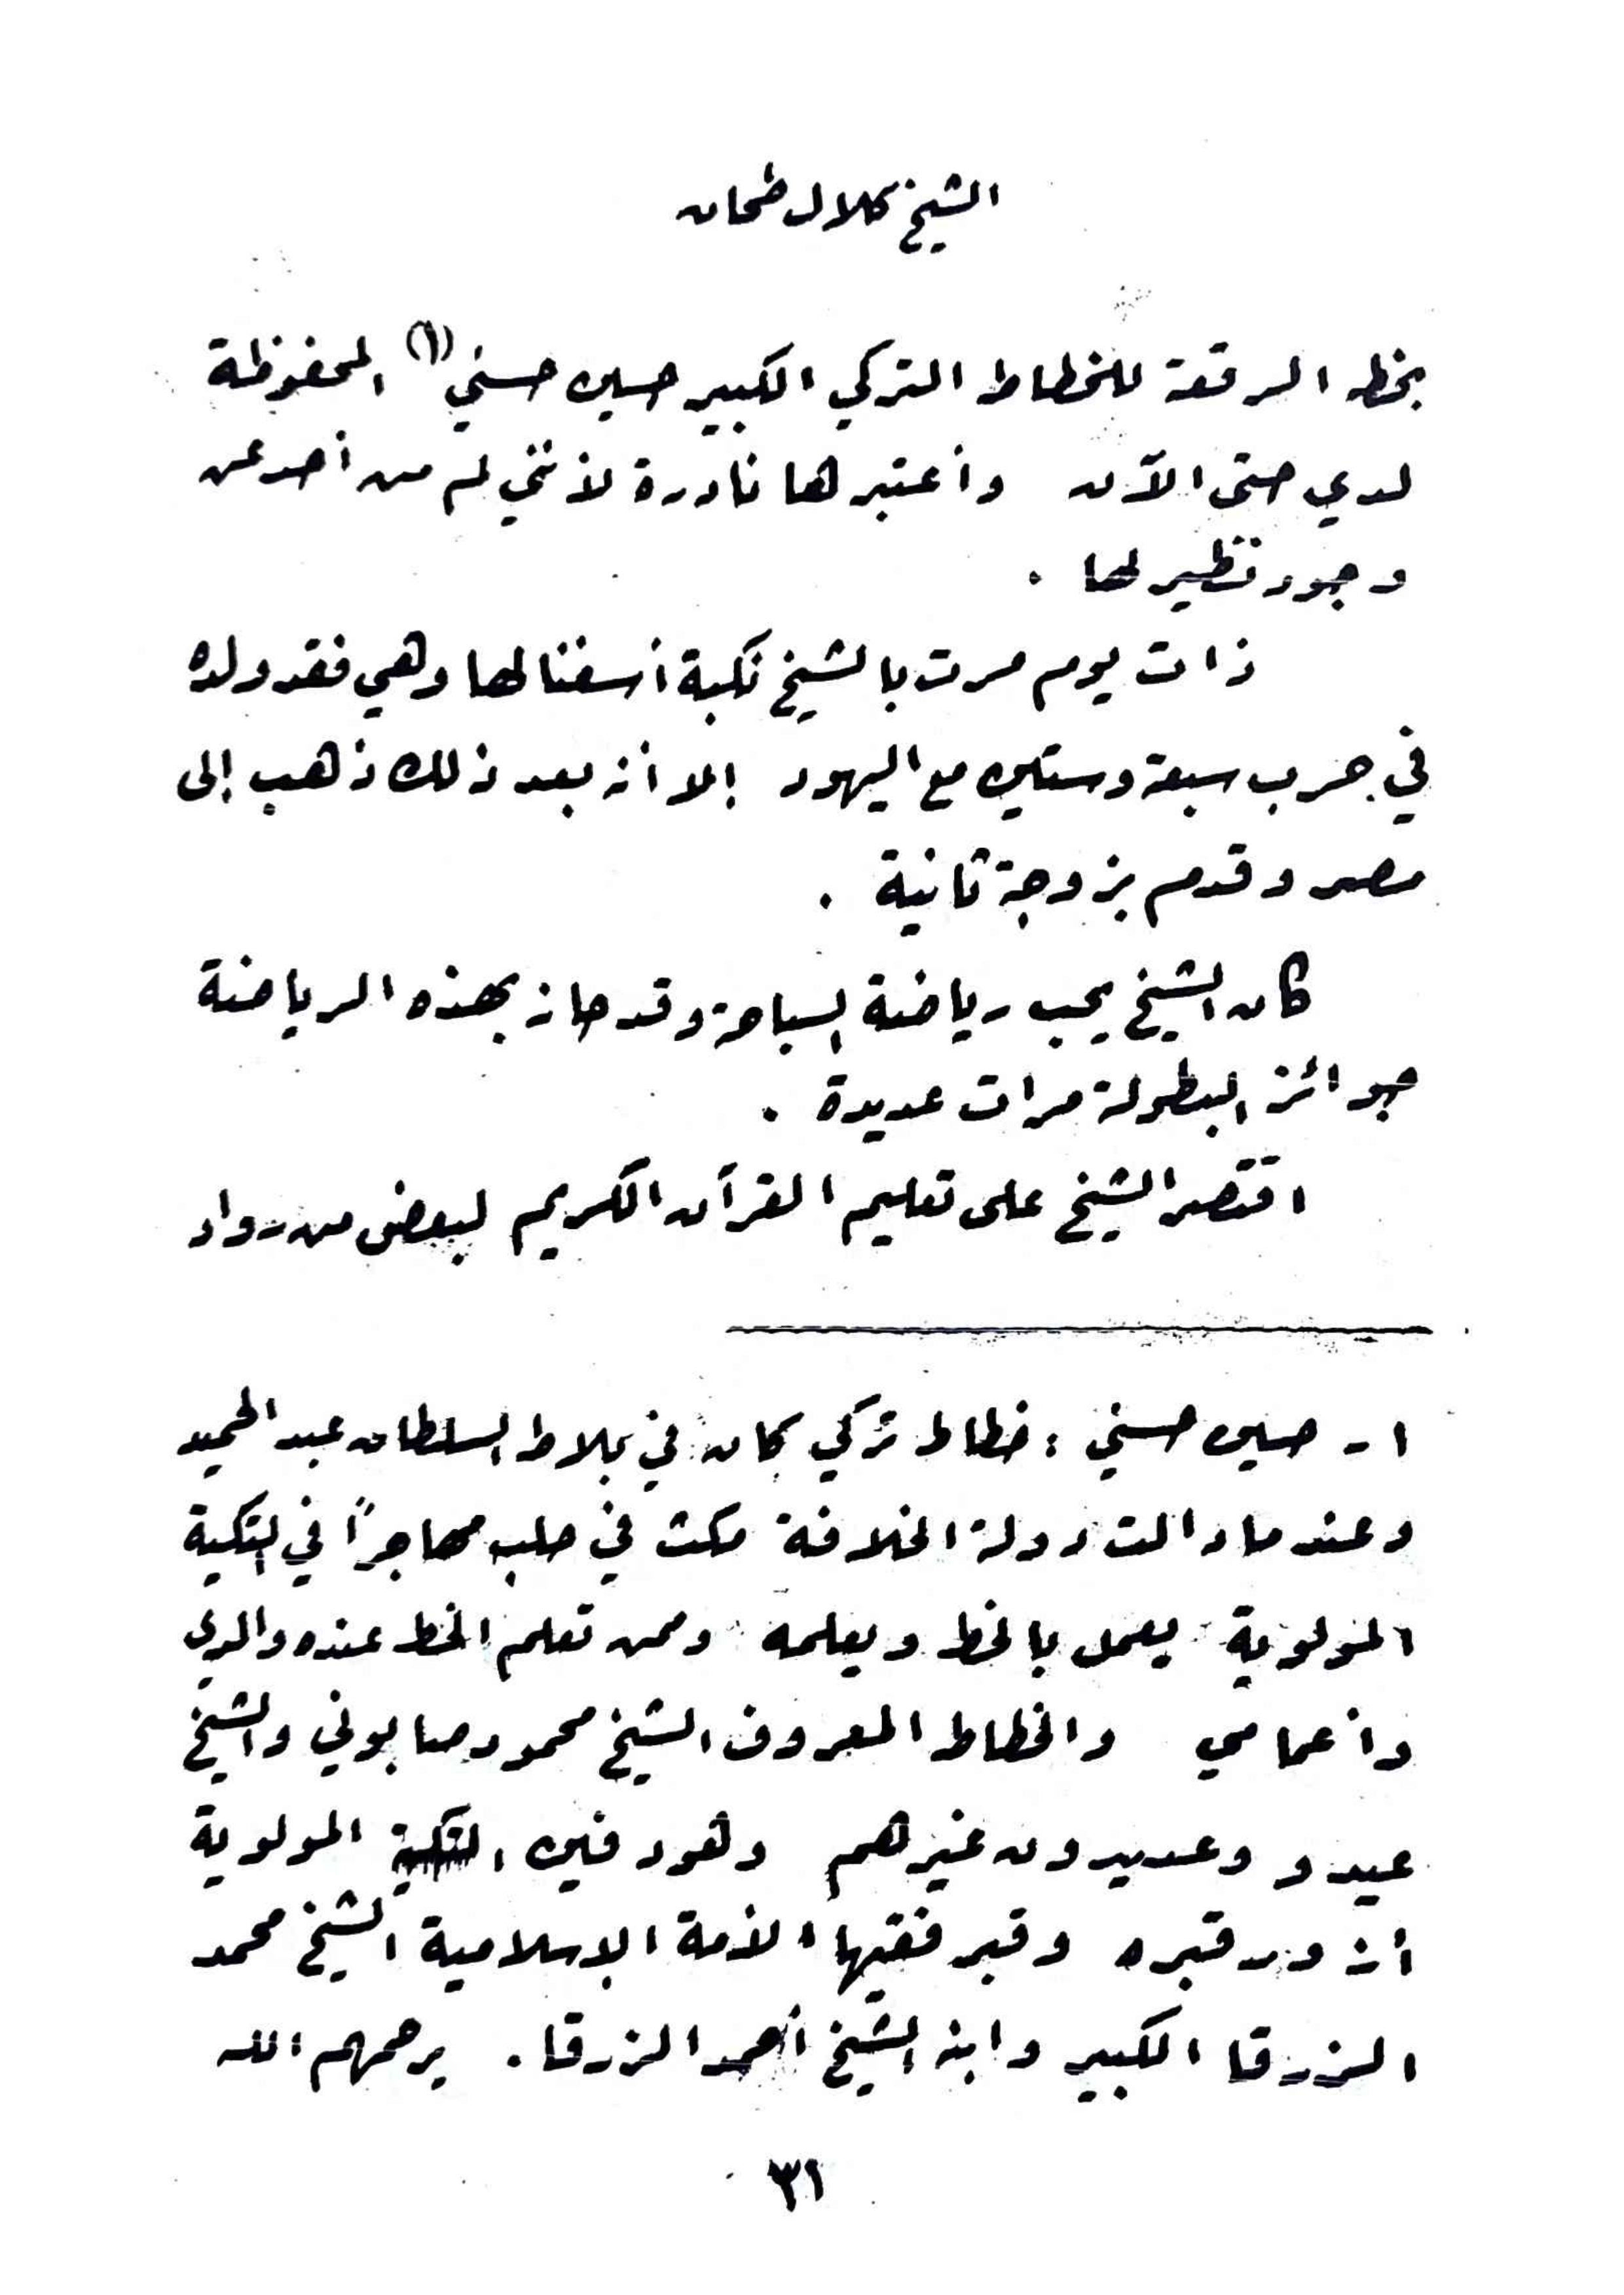 الشيخ كلال طحان
بخط الرقعة للخطاط التركي الكبير حسين حسني (١) المحفوظة
لدي حتى الآن وأعتبرها نادرة لأنني لم من أحد عن
وجود نظير لها .
ذات يوم مرت بالشيخ نكبة أسفنا لها وهي فقد ولده
في حرب سبعة وستين مع اليهود إلا أنه بعد ذلك ذهب إلى
مصر وقدم بزوجة ثانية .
كان الشيخ يحب رياضة السباحة وقد حاز بهذه الرياضة
جوائز البطولة مرات عديدة .
اقتصر الشيخ على تعليم القرآن الكريم لبعض من رواد
١- حسين حسني : خطاط تركي كان في بلاط السلطان عبد الحميد
وعندما دالت دولة الخلافة مكث في حلب مهاجراً في التكية
المولوية يعمل بالخط ويعلمه وممن تعلم الخط عنده والدي
وأعمامي والخطاط المعروف الشيخ محمود صابوني والشيخ
عبدو وعديدون غيرهم وهو دفين التكية المولوية
قبره وقبر فقيها الأمة الإسلامية الشيخ محمد
الزرقا الكبير وابنه الشيخ أحمد الزرقا . يرحمهم الله
٣١